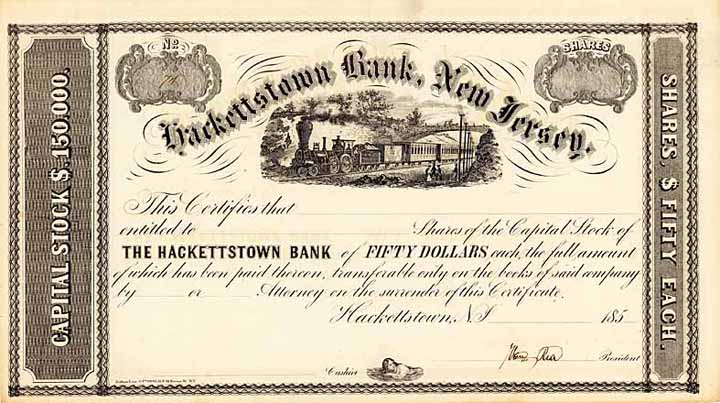 No.
SHARES
Hackettstown Bank, New Jersey.
CAPITAL STOCK $.150.000.
SHARES. $ FIFTY EACH.
This Certifies that
entitled to Shares of the Capital Stock of
THE HACKETTSTOWN BANK of FIFTY DOLLARS each, the full amount
of which has been paid thereon, transferable only on the books of said company
by or Attorney on the surrender of this Certificate.
Hackettstown, N.J. 185
President
Cashier